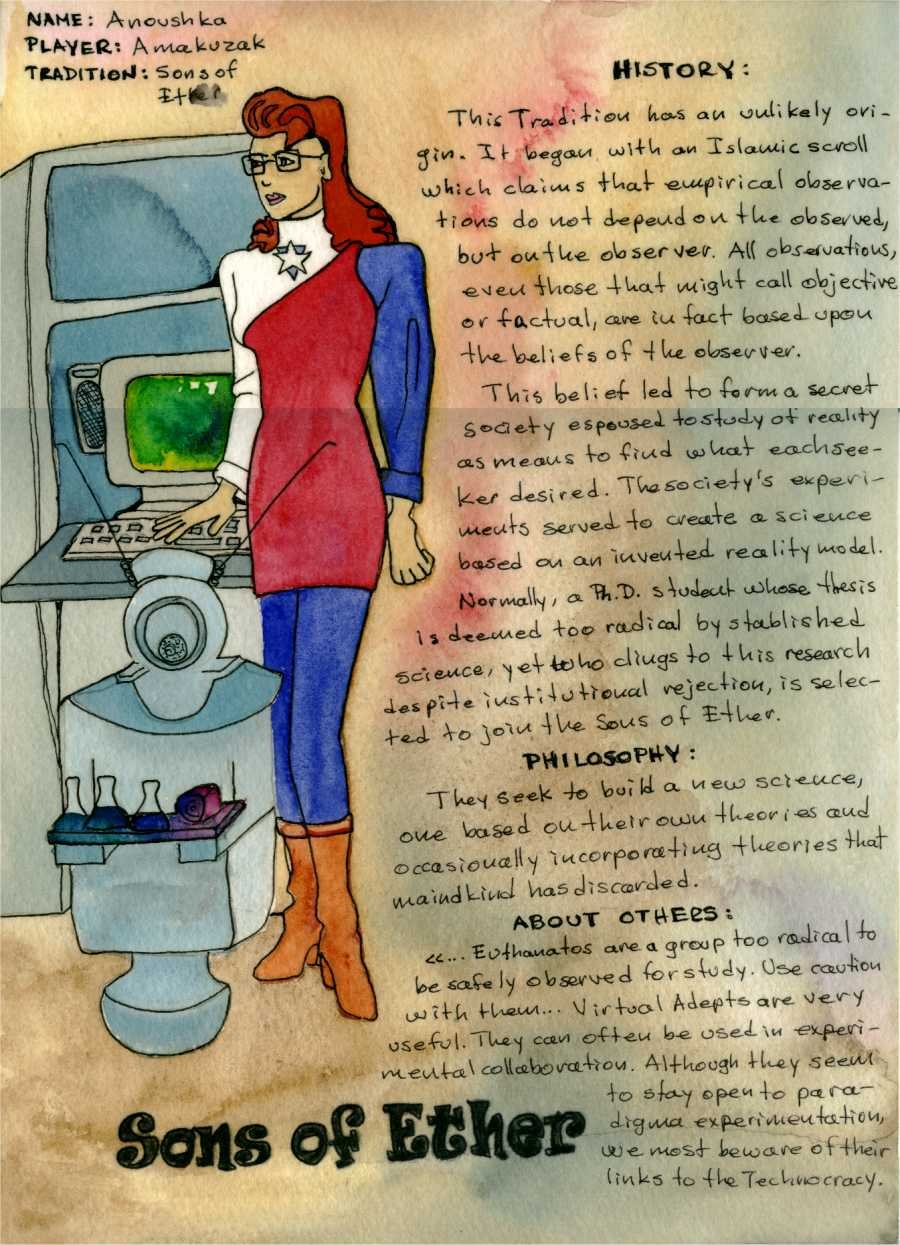 NAME: Anoushka
PLAYER: Amakuzak
TRADITION: Sons of
Ether
HISTORY:
This Tradition has an unlikely ori-
gin. It began with an Islamic scroll
which claims that empirical observa-
tions do not depend on the observed,
but on the observer. All observations,
even those that might call objective
or factual, are in fact based upon
the beliefs of the observer.
This belief led to form a secret
society espoused to study of reality
as means to find what each see-
ker desired. The society's experi-
ments served to create a science
based on an invented reality model.
Normally, a Ph.D. student whose thesis
is deemed too radical by stablished
science, yet who clings to this research
despite institutional rejection, is selec-
ted to join the Sons of Ether.
PHILOSOPHY:
They seek to build a new science,
one based on their own theories and
occasionally incorporating theories that
maindkind has discarded.
ABOUT OTHERS:
«... Euthanatos are a group too radical to
be safely observed for study. Use caution
with them... Virtual Adepts are very
useful. They can often be used in experi-
mental collaboration. Although they seem
to stay open to para-
digma experimentation,
we most beware of their
links to the Technocracy.
Sons of Ether